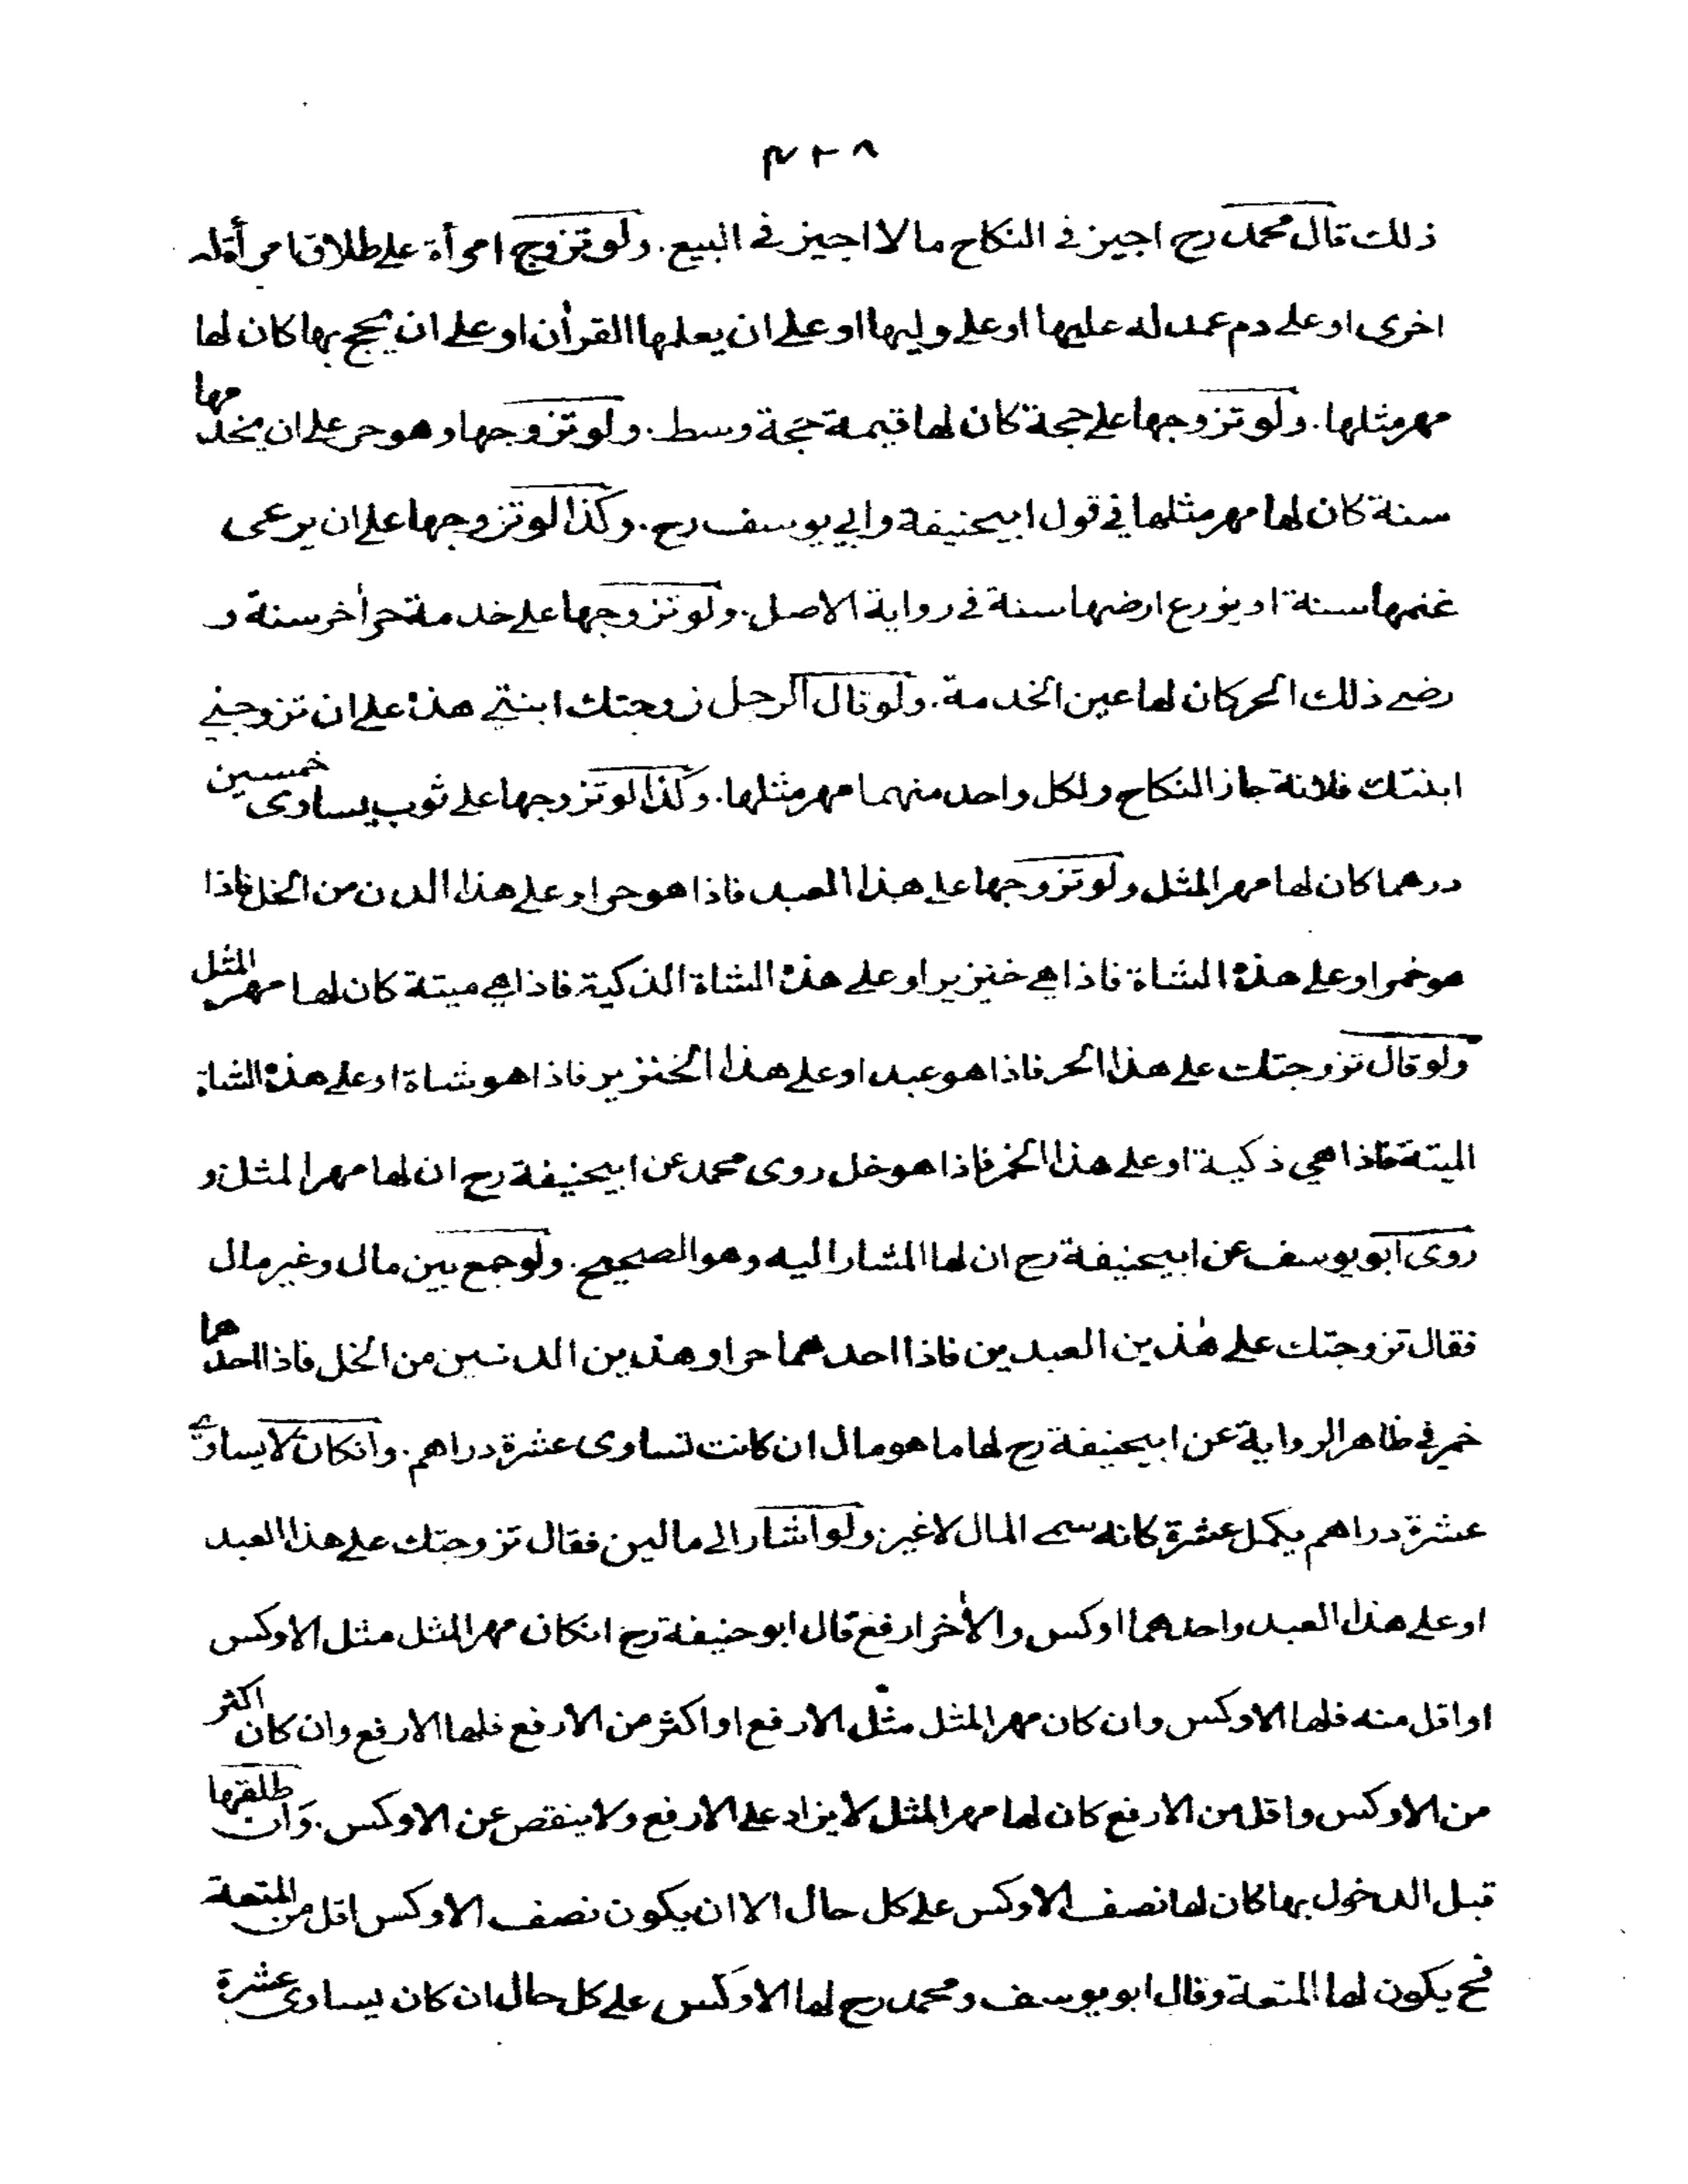 ٤٢٨
ذلك قال محمد رح اجيز في النكاح مالا اجيز في البيع. ولو تزوج امرأة على طلاق امرأة له
اخرى او على دم عمد له عليها او على وليها او على ان يعلمها القرأن او على ان يحج بها كان لها
مهر مثلها. ولو تزوجها على حجة كان لها قيمة حجة وسط. ولو تزوجها وهو حر على ان يخدمها
سنة كان لها مهر مثلها في قول ابيحنيفة وابي يوسف رح. وكذا لو تزوجها على ان يرعى
غنمها سنة او يزرع ارضها سنة في رواية الاصل. ولو تزوجها على خدمة حر أخر سنة و
رضي ذلك الحر كان لها عين الخدمة. ولو قال الرجل زوجتك ابنتي هذه على ان تزوجني
ابنتك فلانة جاز النكاح ولكل واحد منهما مهر مثلها. وكذا لو تزوجها على ثوب يساوى خمسين
درهما كان لها مهر المثل ولو تزوجها على هذا العبد فاذا هو حر او على هذا الدن من الخل فاذا
هو خمر او على هذه الشاة فاذا هي خنزير او على هذه الشاة الذكية فاذا هي ميتة كان لها مهر المثل
ولو قال تزوجتك على هذا الحر فاذا هو عبد او على هذا الخنزير فاذا هو شاة او على هذه الشاة
الميتة فاذا هي ذكية او على هذا الخمر فاذا هو خل روى محمد عن ابيحنيفة رح ان لها مهر المثل و
روى ابو يوسف عن ابيحنيفة رح ان لها المشار اليه وهو الصحيح. ولو جمع بين مال وغير مال
فقال تزوجتك على هٰذين العبدين فاذا احدهما حر او هذين الدنين من الخل فاذا احدهما
خمر في ظاهر الرواية عن ابيحنيفة رح لها ما هو مال ان كانت تساوى عشرة دراهم. وانكان لا يساوي
عشرة دراهم يكمل عشرة كانه سمي المال لا غير ولو اشار الى مالين فقال تزوجتك على هذا العبد
او على هذا العبد واحدهما اوكس والأخر ارفع قال ابو حنيفة رح انكان مهر المثل مثل الاوكس
او اقل منه فلها الاوكس وان كان مهر المثل مثل الارفع او اكثر من الارفع فلها الارفع وان كان اكثر
من الاوكس واقل من الارفع كان لها مهر المثل لا يزاد على الارفع ولا ينقص عن الاوكس. وان طلقها
قبل الدخول بها كان لها نصف الاوكس على كل حال الا ان يكون نصف الاوكس اقل من المتعة
فح يكون لها المتعة وقال ابو يوسف ومحمد رح لها الاوكس على كل حال ان كان يساوى عشرة